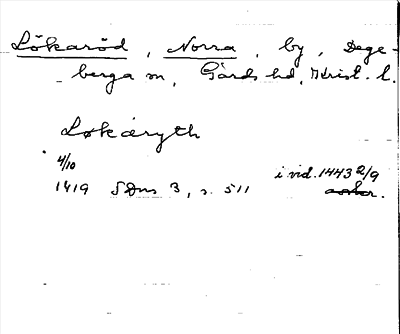 Lökaröd, Norra, by, Dege-
berga sn, Gärds hd, Krist. l.
Løkaryth
4/10
1419 SDns 3, s. 511 i vid. 1443 2/9